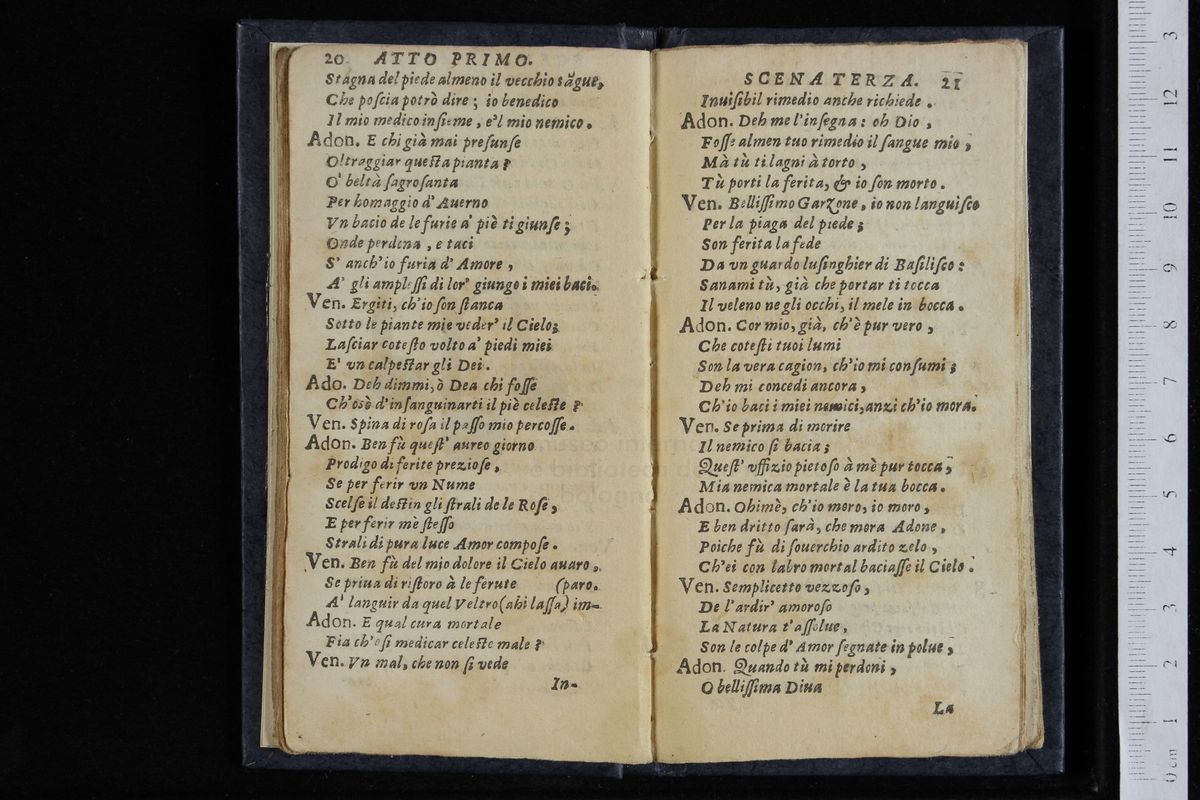 20 ATTO PRIMO.
Stagna del piede almeno il vecchio sãgue,
Che poscia potrò dire ; io benedico
Il mio medico insieme , e'l mio nemico .
Adon. E chi già mai presunse
Oltraggiar questa pianta ?
O' beltà sagrosanta
Per homaggio d' Auerno
Vn bacio de le furie a' piè ti giunse ;
Onde perdona , e taci
S' anch'io furia d' Amore ,
A' gli amplessi di lor' giungo i miei baci.
Ven. Ergiti, ch'io son stanca
Sotto le piante mie veder' il Cielo;
Lasciar cotesto volto a' piedi miei
E' vn calpestar gli Dei .
Ado. Deh dimmi, ò Dea chi fosse
Ch'osò d'insanguinarti il piè celeste ?
Ven. Spina di rosa il passo mio percosse .
Adon. Ben fù quest' aureo giorno
Prodigo di ferite preziose ,
Se per ferir vn Nume
Scelse il destin gli strali de le Rose ,
E per ferir mè stesso
Strali di pura luce Amor compose .
Ven. Ben fù del mio dolore il Cielo auaro ,
Se priua di ristoro à le ferute (paro.
A' languir da quel Veltro (ahi lassa) im-
Adon. E qual cura mortale
Fia ch'osi medicar celeste male ?
Ven. Vn mal, che non si vede
In-
SCENA TERZA. 21
Inuisibil rimedio anche richiede .
Adon. Deh me l'insegna : oh Dio ,
Fosse almen tuo rimedio il sangue mio ,
Mà tù ti lagni à torto ,
Tù porti la ferita, & io son morto .
Ven. Bellissimo Garzone , io non languisco
Per la piaga del piede ;
Son ferita la fede
Da vn guardo lusinghier di Basilisco :
Sanami tù, già che portar ti tocca
Il veleno ne gli occhi, il mele in bocca .
Adon. Cor mio, già, ch'è pur vero ,
Che cotesti tuoi lumi
Son la vera cagion, ch'io mi consumi ;
Deh mi concedi ancora ,
Ch'io baci i miei nemici, anzi ch'io mora.
Ven. Se prima di morire
Il nemico si bacia ;
Quest' vffizio pietoso à mè pur tocca ,
Mia nemica mortale è la tua bocca .
Adon. Ohimè, ch'io moro, io moro ,
E ben dritto sarà, che mora Adone ,
Poiche fù di souerchio ardito zelo ,
Ch'ei con labro mortal baciasse il Cielo .
Ven. Semplicetto vezzoso ,
De l'ardir' amoroso
La Natura t'assolue ,
Son le colpe d' Amor segnate in polue ,
Adon. Quando tù mi perdoni ,
O bellissima Diua
La
0 cm 1 2 3 4 5 6 7 8 9 10 11 12 3